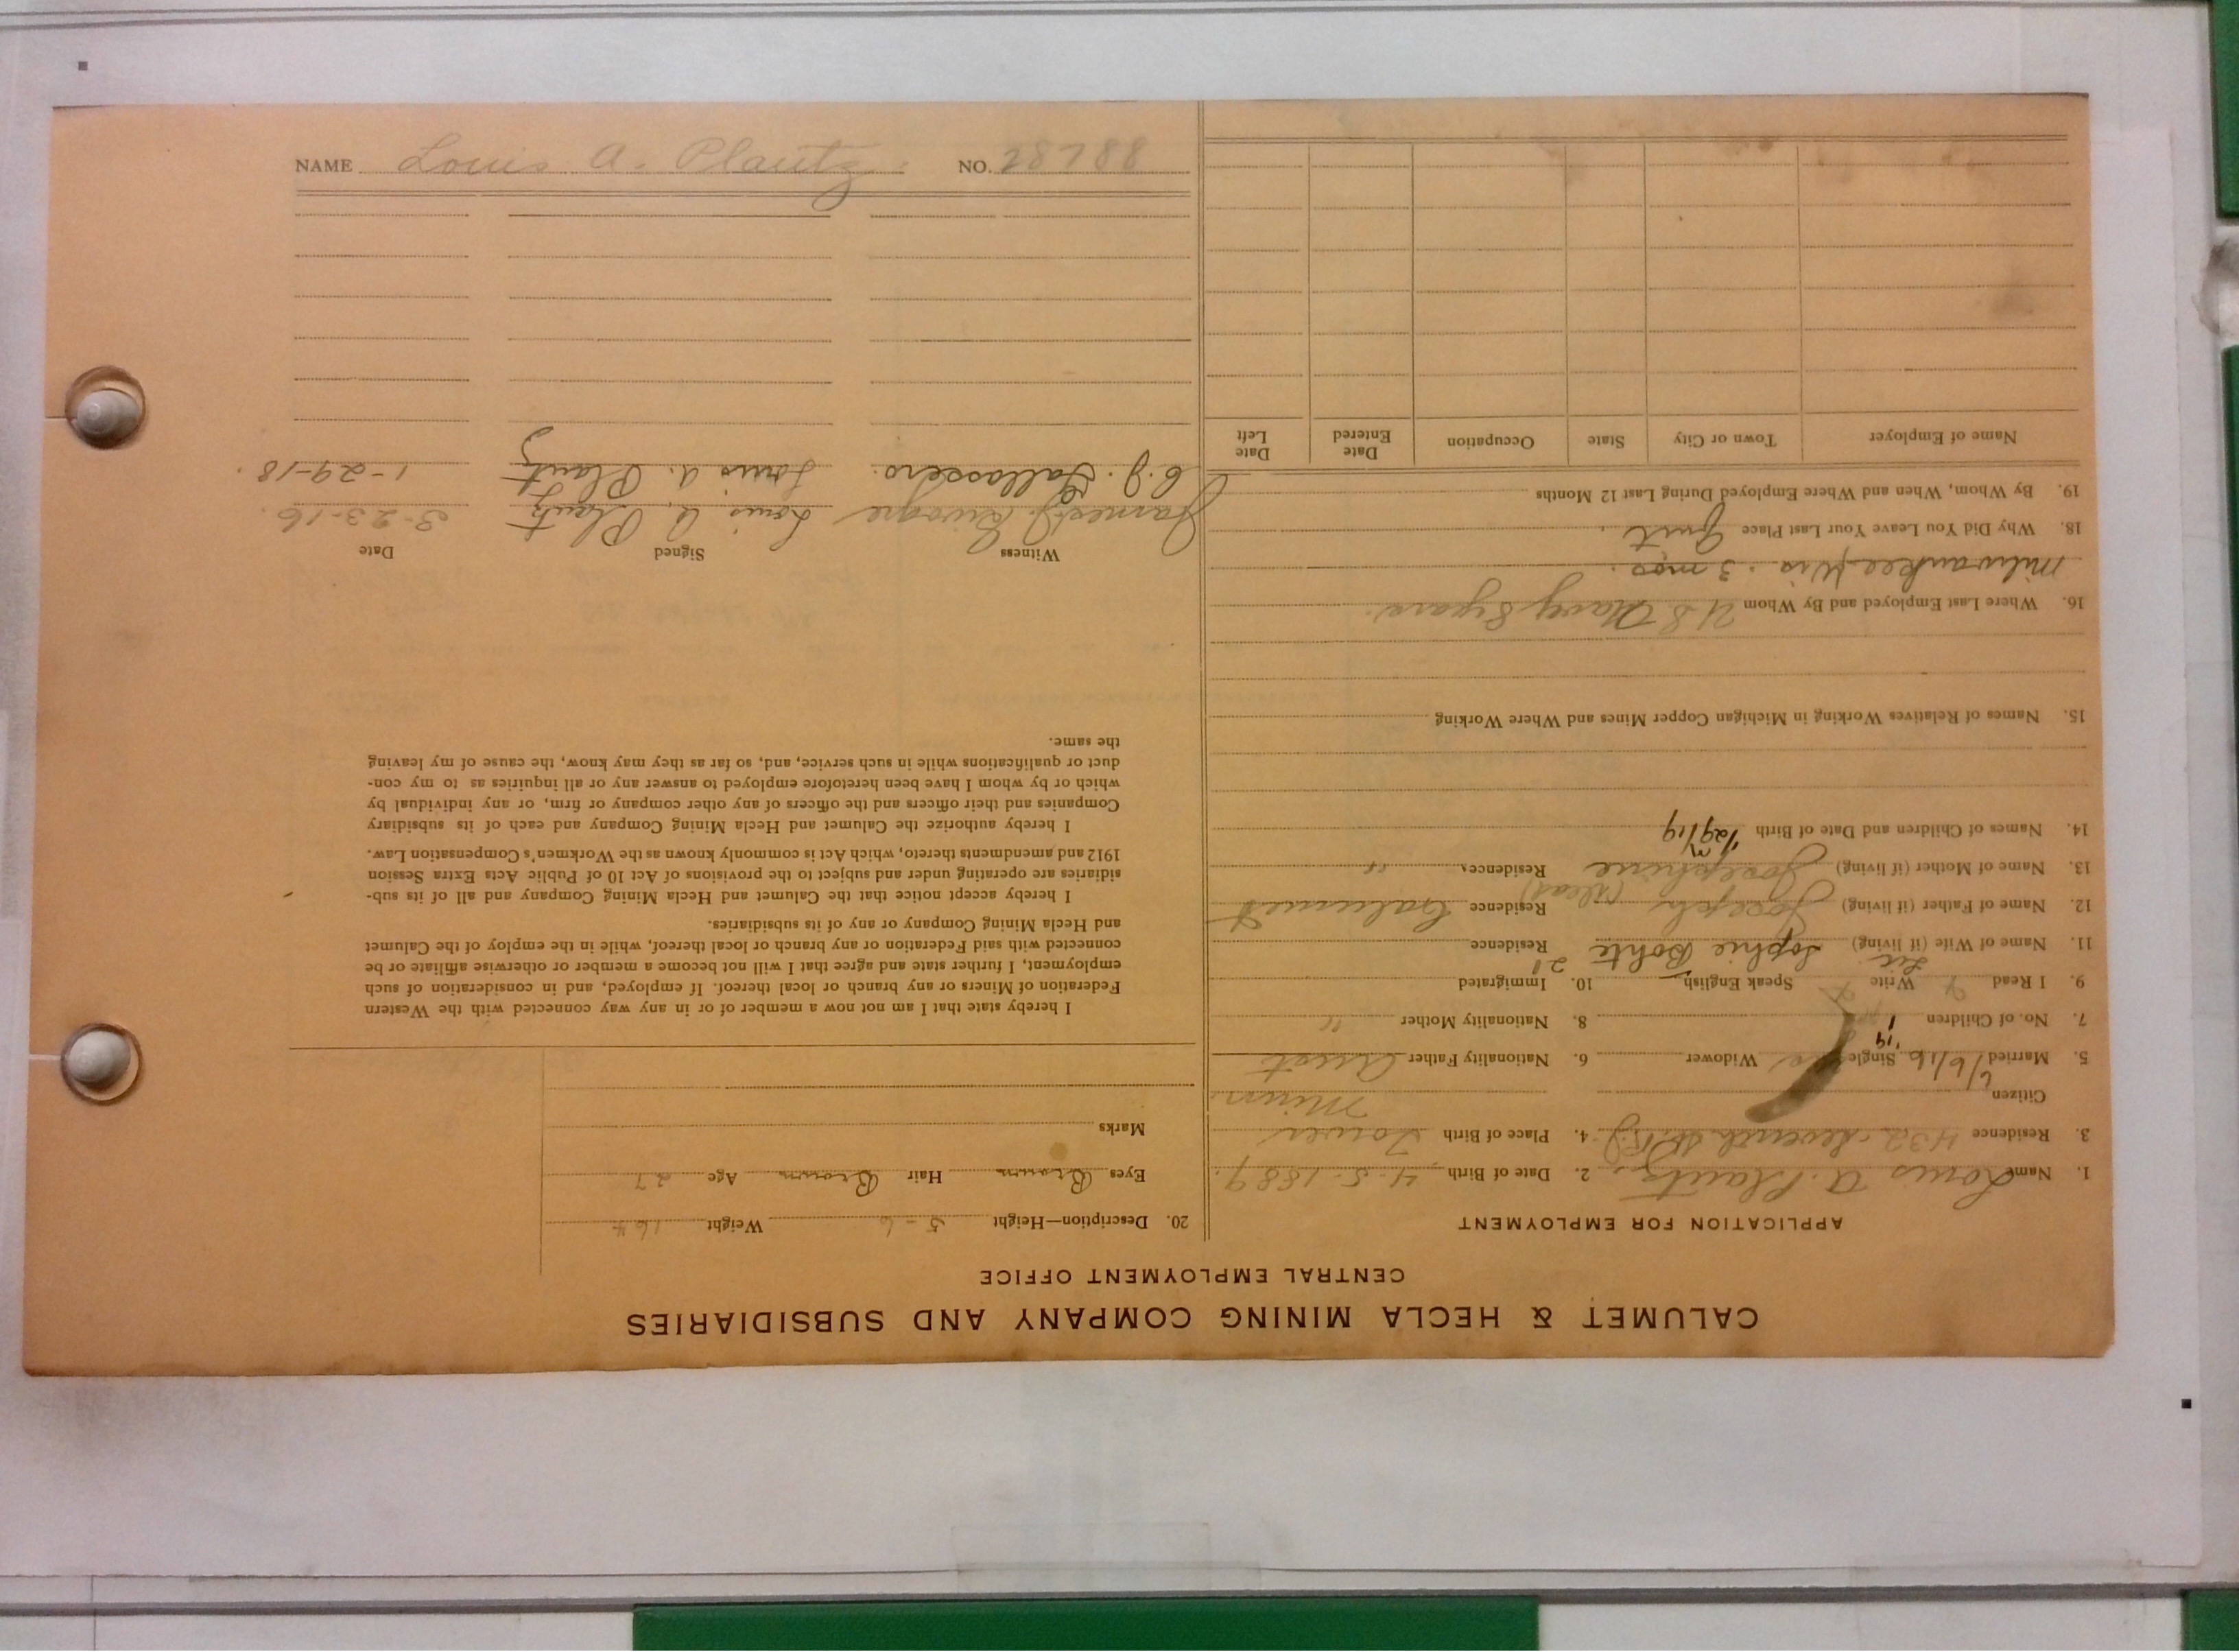 CALUMET & HECLA MINING COMPANY AND SUBSIDIARIES
CENTRAL EMPLOYMENT OFFICE
APPLICATION FOR EMPLOYMENT
1. Name Louis A. Plautz. 2. Date of Birth 4-5-1889.
3. Residence 432 Seventh St. 4. Place of Birth Tower
Citizen Minn.
5. Married 6/6/16 '19 Single Widower 6. Nationality Father Aust
7. No. of Children 1 8. Nationality Mother "
9. I Read Write Speak English 10. Immigrated
11. Name of Wife (if living) Sophie Bohte 21 Residence
12. Name of Father (if living) Joseph (dead) Residence Calumet
13. Name of Mother (if living) Josephine Residence "
14. Names of Children and Date of Birth M 1/29/19
15. Names of Relatives Working in Michigan Copper Mines and Where Working
16. Where Last Employed and By Whom U S Navy 8 years.
Milwaukee, Wis. 3 mos.
18. Why Did You Leave Your Last Place Quit
19. By Whom, When and Where Employed During Last 12 Months
Name of Employer Town or City State Occupation Date Entered Date Left
20. Description—Height 5-6 Weight 164
Eyes Brown Hair Brown Age 27
Marks
I hereby state that I am not now a member of or in any way connected with the Western
Federation of Miners or any branch or local thereof. If employed, and in consideration of such
employment, I further state and agree that I will not become a member or otherwise affiliate or be
connected with said Federation or any branch or local thereof, while in the employ of the Calumet
and Hecla Mining Company or any of its subsidiaries.
I hereby accept notice that the Calumet and Hecla Mining Company and all of its sub-
sidiaries are operating under and subject to the provisions of Act 10 of Public Acts Extra Session
1912 and amendments thereto, which Act is commonly known as the Workmen's Compensation Law.
I hereby authorize the Calumet and Hecla Mining Company and each of its subsidiary
Companies and their officers and the officers of any other company or firm, or any individual by
which or by whom I have been heretofore employed to answer any or all inquiries as to my con-
duct or qualifications while in such service, and, so far as they may know, the cause of my leaving
the same.
Witness Signed Date
James J. Louis A. Plautz 3-23-16.
Louis A. Plautz 1-29-18.
NAME Louis A. Plautz. NO. 28788